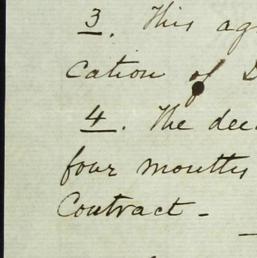 3. This ag
cation of
4. The dec
four months
Contract -